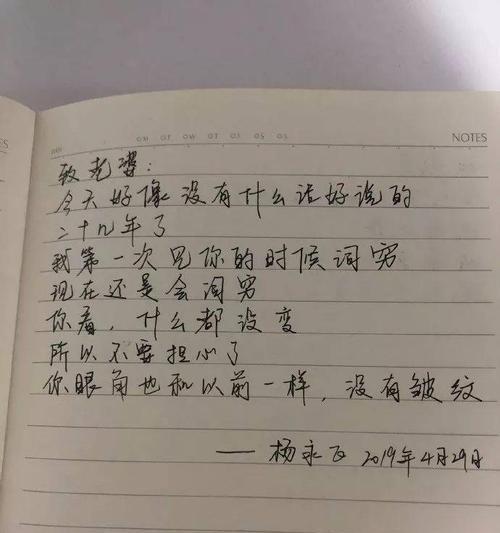 NOTES
致老婆：
今天好像没有什么话好说的
二十几年了
我第一次见你的时候词穷
现在还是会词穷
你看，什么都没变
所以不要担心了
你眼角也和以前一样，没有皱纹
——杨永 2019年4月29日